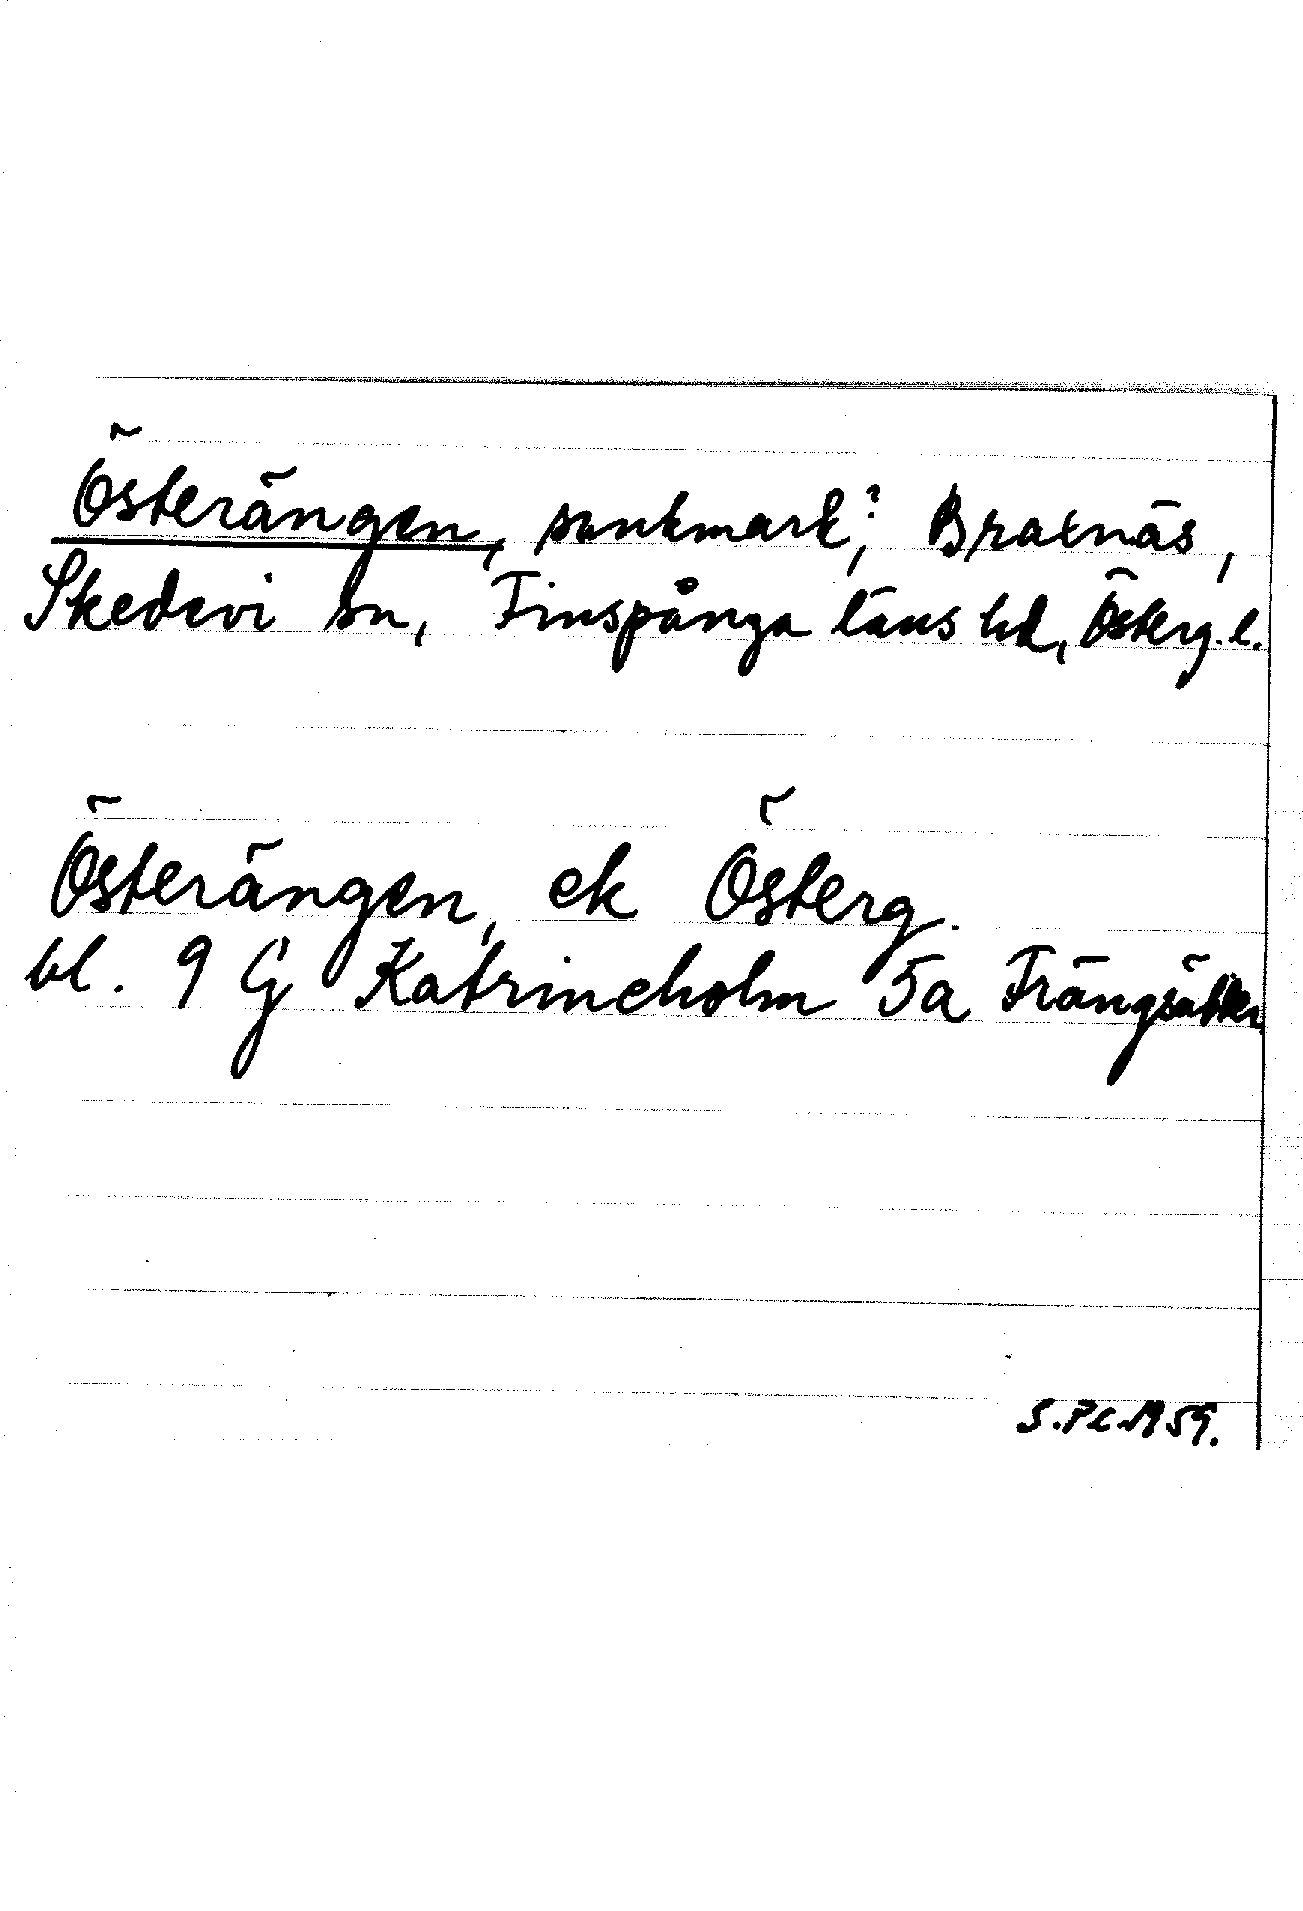 Österängen, sankmark?, Braxnäs,
Skedevi sn, Finspånga läns hd, Österg. l.
Österängen, ek Österg.
bl. 9 G Katrineholm 5a Trängsätter
S.P.C. 1959.